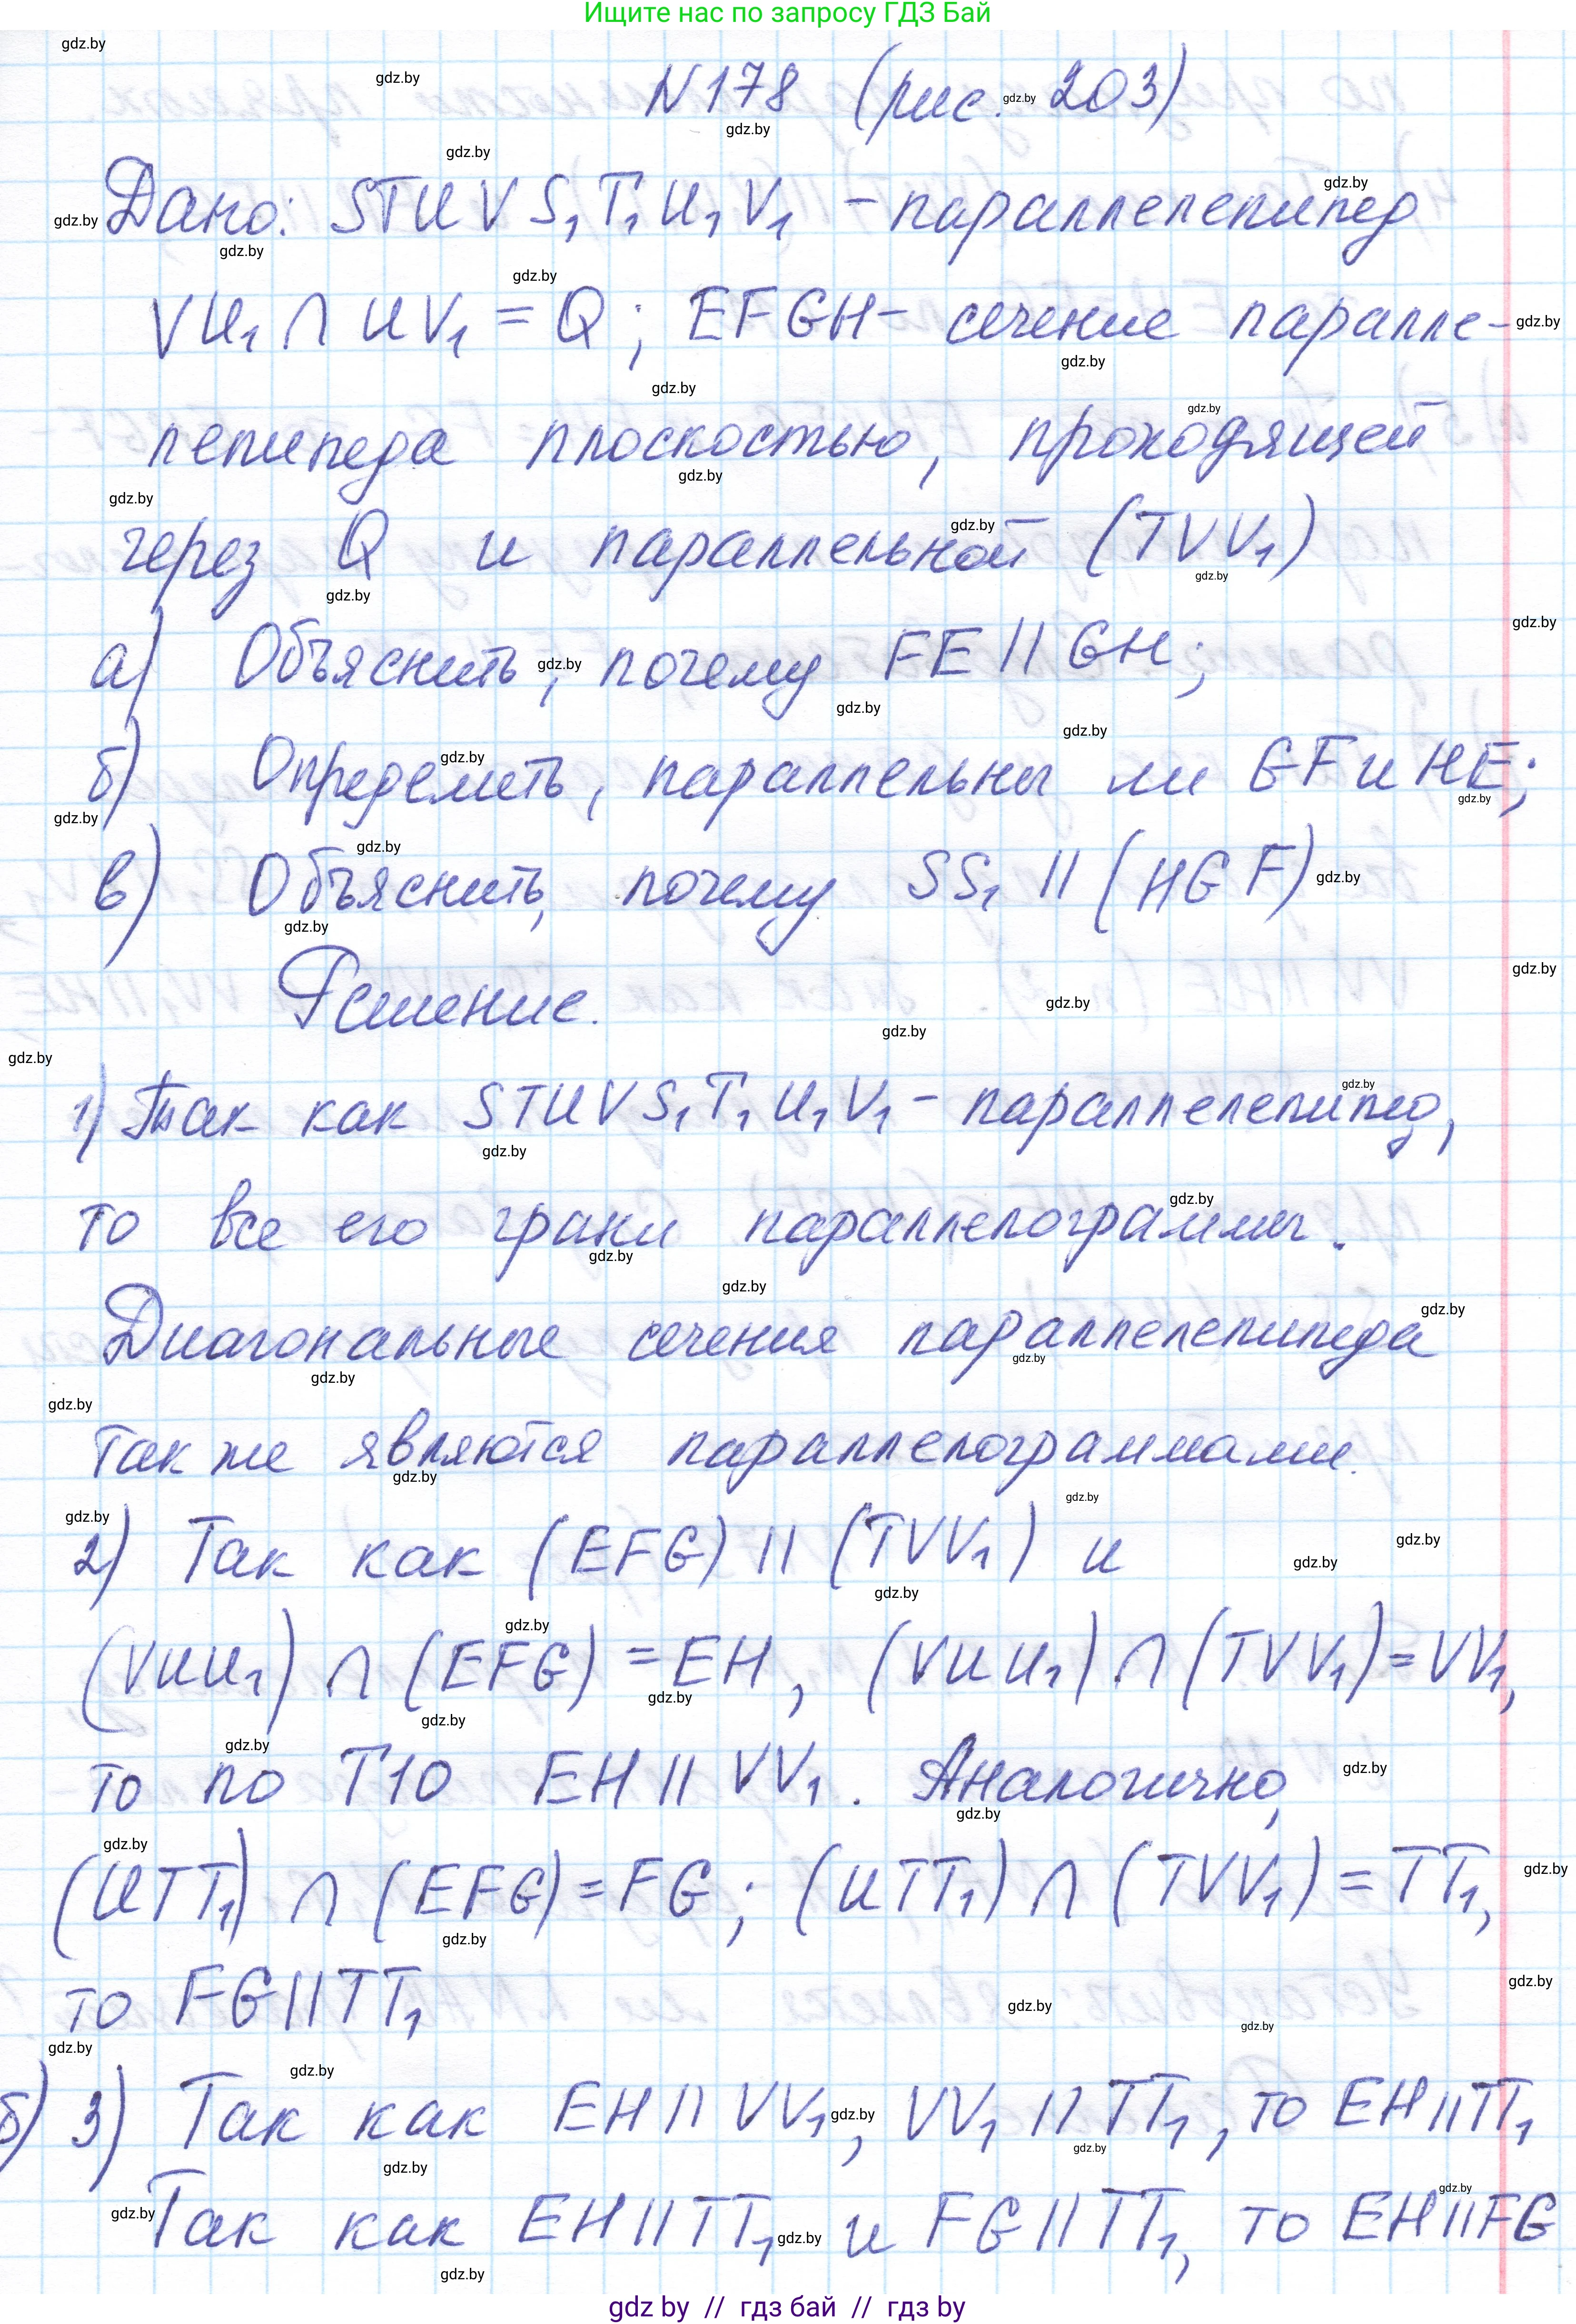 Ищите нас по запросу ГДЗ Бай
N178 (рис. 203)
Дано: STUVS₁T₁U₁V₁ - параллелепипед
VU₁ ∩ UV₁ = Q; EFGH - сечение паралле-
лепипеда плоскостью, проходящей
через Q и параллельной (TVV₁)
а) Объяснить, почему FE || GH;
б) Определить, параллельны ли GF и HE;
в) Объяснить, почему SS₁ || (HGF)
Решение.
1) Так как STUVS₁T₁U₁V₁ - параллелепипед,
то все его грани параллелограммы.
Диагональные сечения параллелепипеда
также являются параллелограммами.
2) Так как (EFG) || (TVV₁) и
(VUU₁) ∩ (EFG) = EH, (VUU₁) ∩ (TVV₁) = VV₁,
то по Т10 EH || VV₁. Аналогично,
(UTT₁) ∩ (EFG) = FG; (UTT₁) ∩ (TVV₁) = TT₁,
то FG || TT₁
б) 3) Так как EH || VV₁, VV₁ || TT₁, то EH || TT₁
Так как EH || TT₁ и FG || TT₁, то EH || FG
gdz by // гдз бай // гдз by